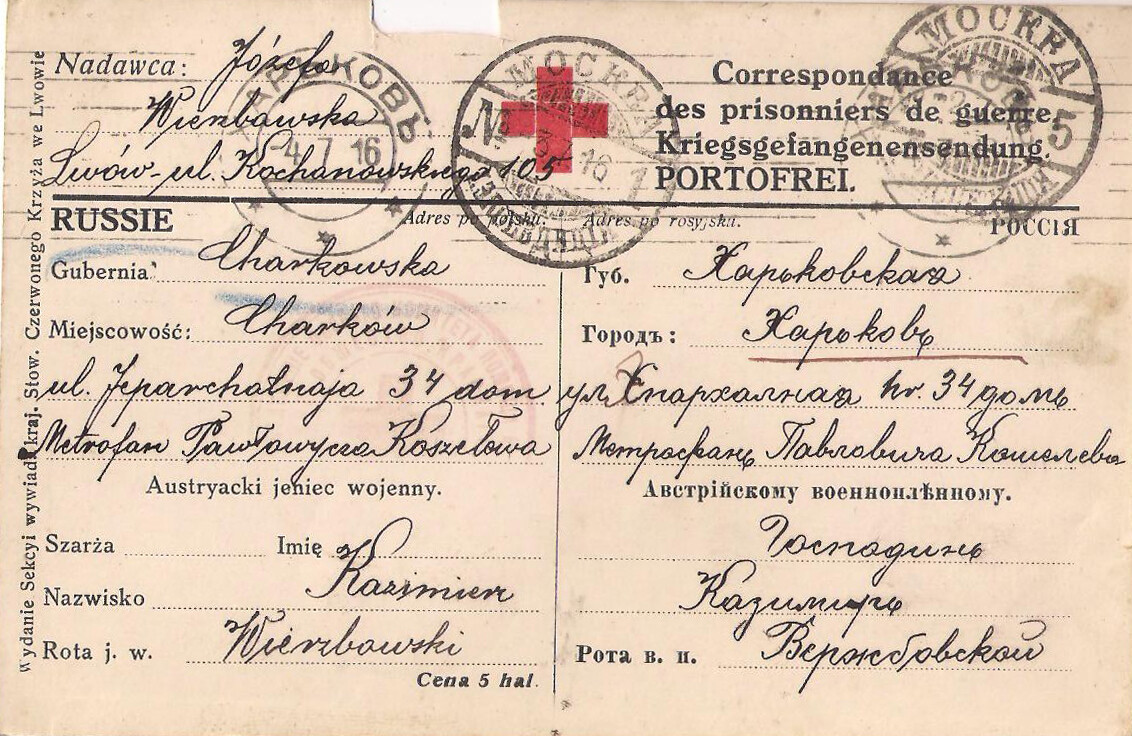 Nadawca: Józefa
Wierzbawska
Lwów ul. Kochanowskiego 105
Correspondance
des prisonniers de guerre.
Kriegsgefangenensendung.
PORTOFREI.
ХАРЬКОВЪ
4 7 16
МОСКВА
№ 1
МОСКВА
5
RUSSIE
Adres po polsku.
Adres po rosyjsku.
РОССІЯ
Gubernia: Charkowska
Miejscowość: Charków
ul. Jeparchalnaja 34 dom
Metrofan Pawłowycza Koszełowa
Austryacki jeniec wojenny.
Szarża Imię
Kazimierz
Nazwisko
Rota j. w. Wierzbawski
Cena 5 hal.
Губ. Харьковская
Городъ: Харьковъ
ул Епархалная nr. 34 домъ
Метрофанъ Павловича Кошелева
Австрійскому военноплѣнному.
Господинъ
Казимиръ
Рота в. п. Вержбовской
Wydanie Sekcyi wywiad. kraj. Stow. Czerwonego Krzyża we Lwowie